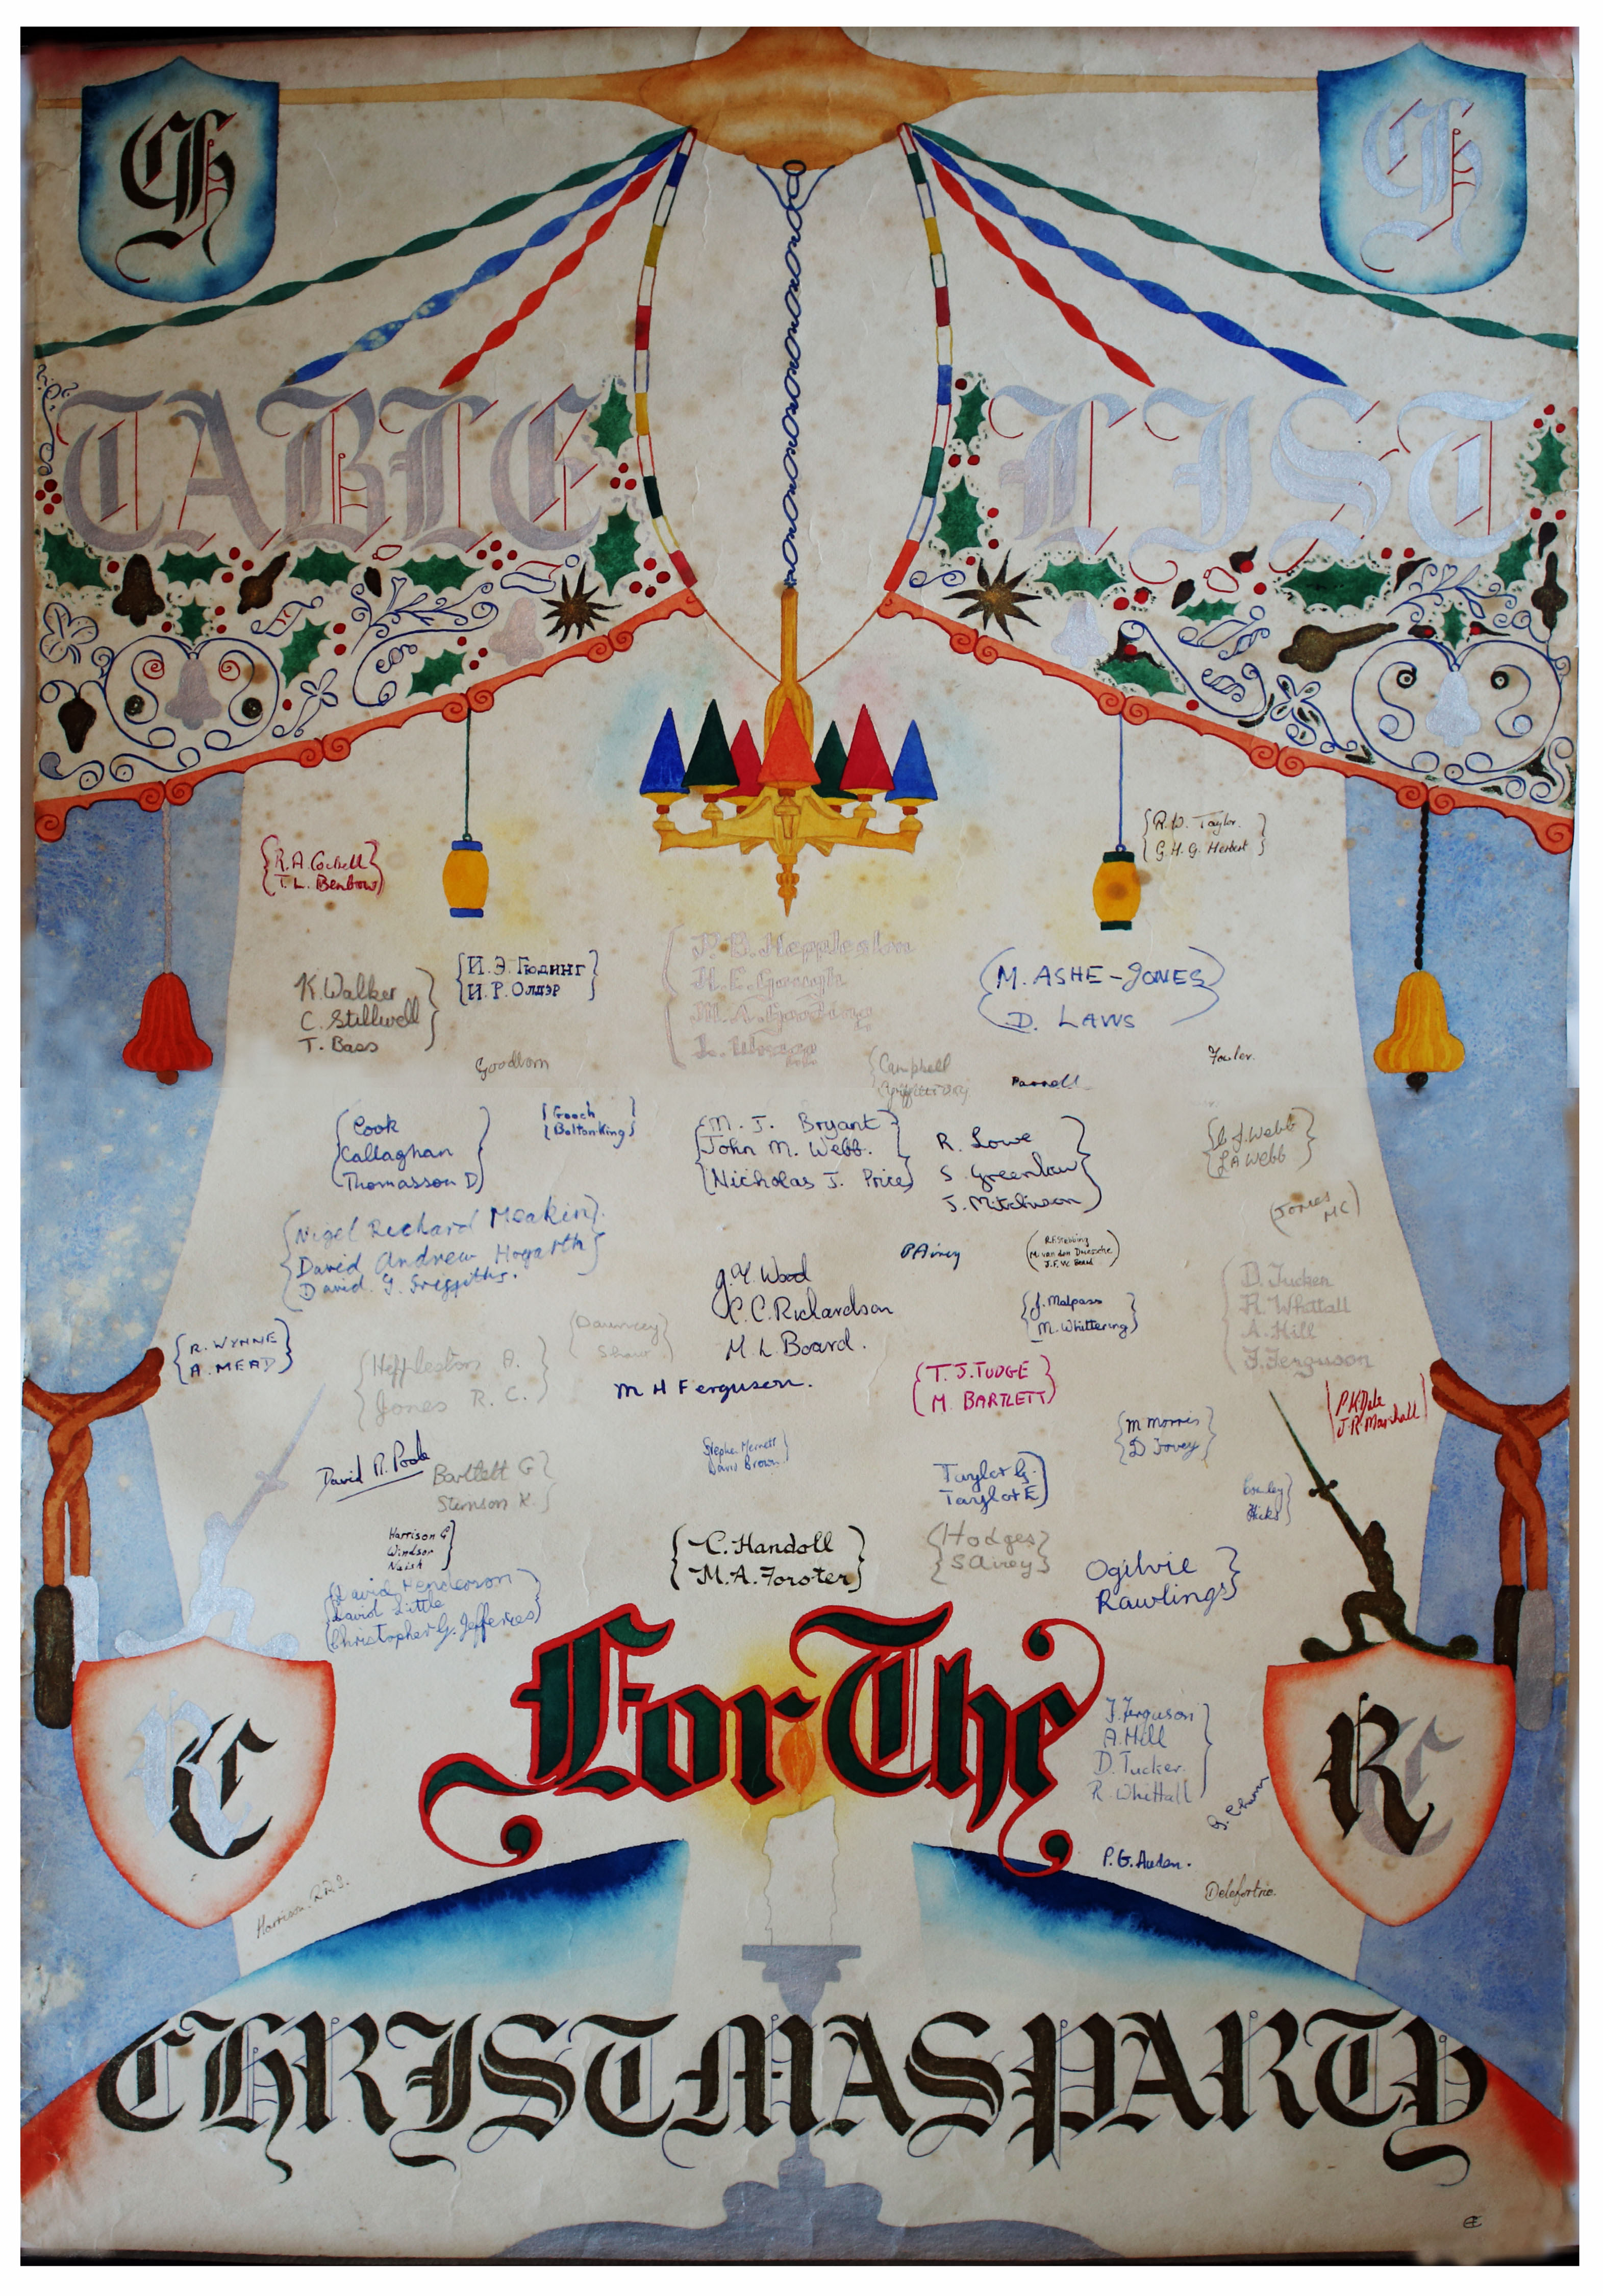 CH
CH
TABLE LIST
R. W. Taylor.
G. H. G. Herbert
T. L. Benbow
K. Walker
C. Stillwell
T. Bass
И. Э. Гюдинг
И. Р. Олдэр
P. B. Heppleston
H. E. Gough
M. A. Gooding
M. ASHE-JONES
D. LAWS
Goodborn
Campbell
Parnell
Fowler.
Cook
Callaghan
Thomasson D
Gooch
Bolton King
M. J. Bryant
John M. Webb.
Nicholas J. Price
R. Lowe
S. Greenlaw
J. Mitchinson
C J. Webb
L A Webb
Jones
MC
Nigel Richard Meakin
David Andrew Hogarth
David. G. Griffiths.
P Airey
R.F. Stebbing
M. van den Driessche
J. Y. Wood
P. C. Richardson
M. L. Board.
J. Malpass
M. Whittering
D. Tucker
R. Whittall
A. Hill
J. Ferguson
R. WYNNE
A. MEAD
Heppleston A.
Jones R. C.
Dauncey
Shaw
M H Ferguson.
T. J. TUDGE
M. BARTLETT
P K Dale
J. R. Marshall
M Morris
D Tovey
David R. Poole
Bartlett G
Stimson K.
David Brown
Taylor G.
Taylor E
Hicks
Harrison G
Windsor
Naish
C. Handoll
M. A. Forster
Hodges
S Airey
Ogilvie
Rawlings
David Henderson
David Little
Christopher G. Jefferies
For The
J. Ferguson
A. Hill
D. Tucker
R. Whittall
RC
RC
P. G. Auden.
Delefortrie.
CHRISTMAS PARTY